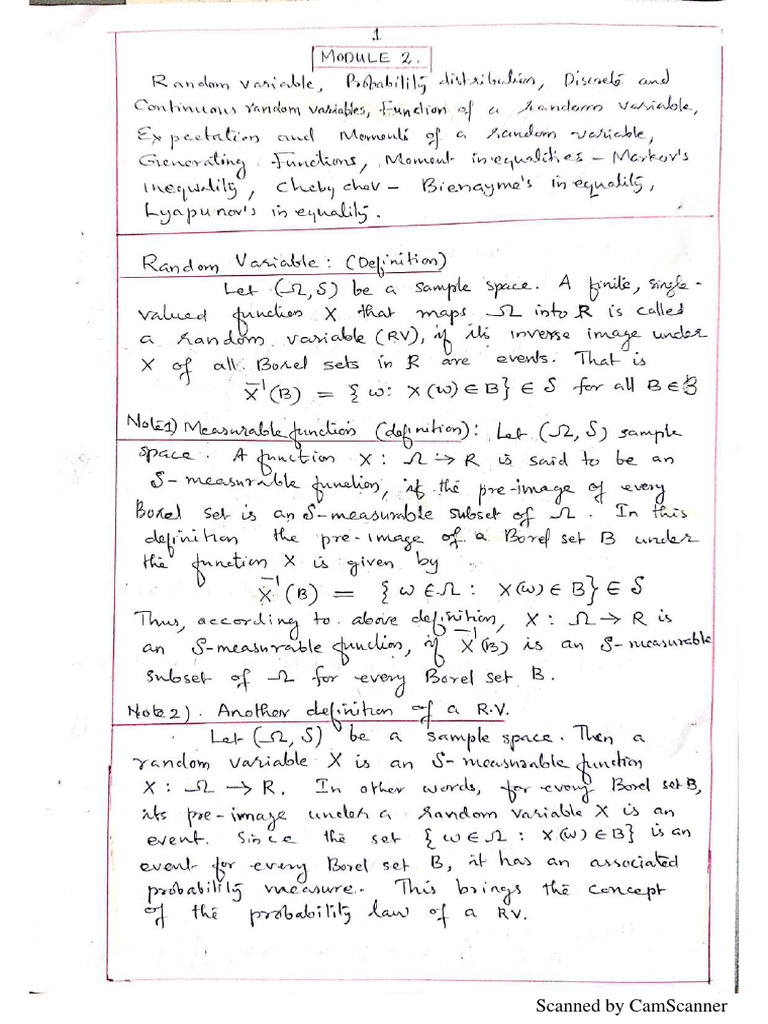 1
MODULE 2.
Random variable, Probability distribution, Discrete and
Continuous random variables, Function of a random variable,
Expectation and Moments of a random variable,
Generating Functions, Moment inequalities - Markov's
inequality, Chebychev - Bienayme's inequality,
Lyapunov's inequality.
Random Variable: (Definition)
Let (Ω, S) be a sample space. A finite, single-
valued function X that maps Ω into R is called
a random variable (RV), if its inverse image under
X of all Borel sets in R are events. That is
X⁻¹(B) = { ω: X(ω) ∈ B} ∈ S for all B ∈ 𝔅
Note1) Measurable function (definition): Let (Ω, S) sample
space. A function X: Ω → R is said to be an
S-measurable function, if the pre-image of every
Borel set is an S-measurable subset of Ω. In this
definition the pre-image of a Borel set B under
the function X is given by
X⁻¹(B) = { ω ∈ Ω : X(ω) ∈ B} ∈ S
Thus, according to above definition, X: Ω → R is
an S-measurable function, if X⁻¹(B) is an S-measurable
subset of Ω for every Borel set B.
Note 2). Another definition of a R.V.
Let (Ω, S) be a sample space. Then a
random variable X is an S-measurable function
X: Ω → R. In other words, for every Borel set B,
its pre-image under a random variable X is an
event. Since the set { ω ∈ Ω : X(ω) ∈ B} is an
event for every Borel set B, it has an associated
probability measure. This brings the concept
of the probability law of a RV.
Scanned by CamScanner